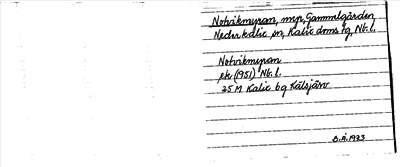 Notvikmyran, myr, Gammelgården,
Nederkalix sn, Kalix dms tg, Nb. l.
Notvikmyran
ek (1951) Nb. l.
25 M Kalix
B.Å. 1973